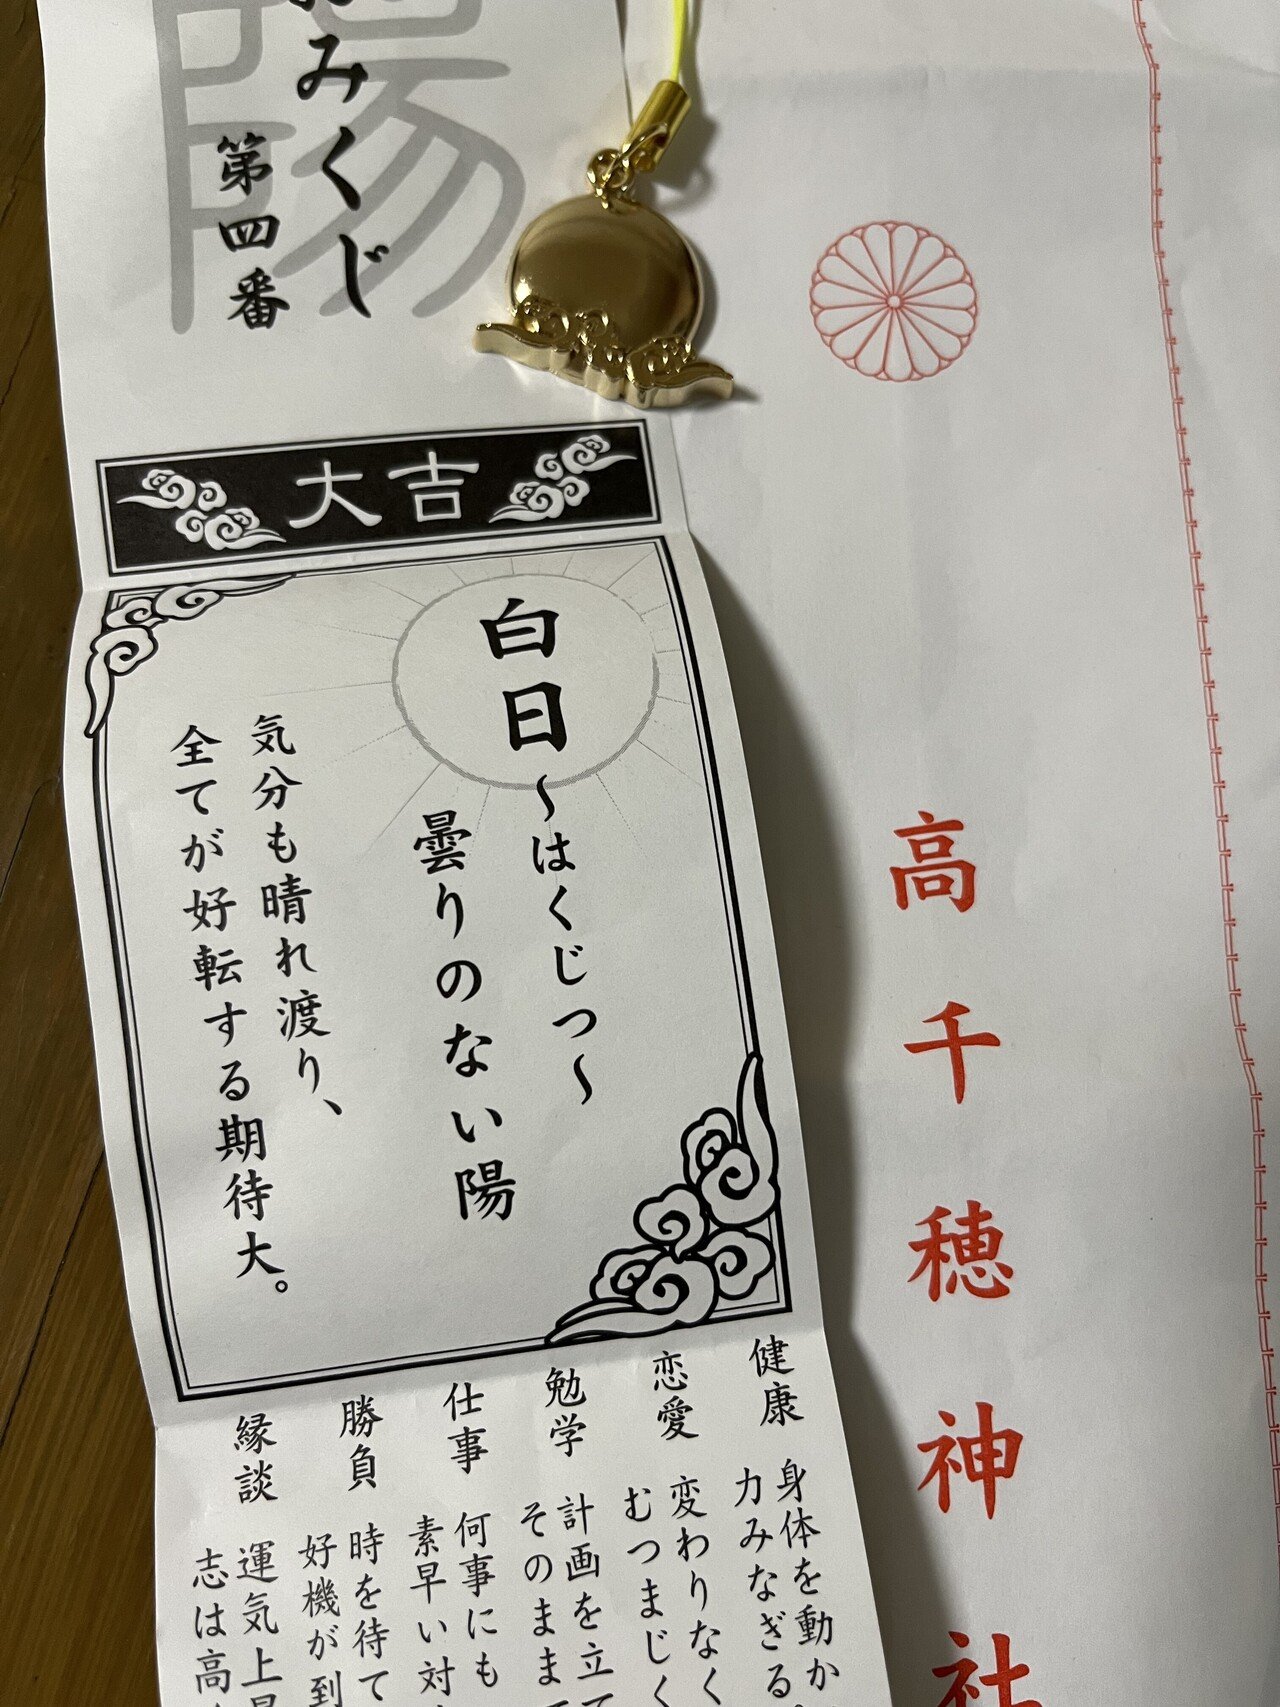 みくじ
第四番
陽
大吉
白日〜はくじつ〜
曇りのない陽
気分も晴れ渡り、
全てが好転する期待大。
健康
身体を動か
力みなぎる
恋愛
変わりなく
むつまじく
勉学
計画を立て
そのまま
仕事
何事にも
素早い対
勝負
時を待て
好機が到
縁談
運気上昇
志は高
高千穂神社